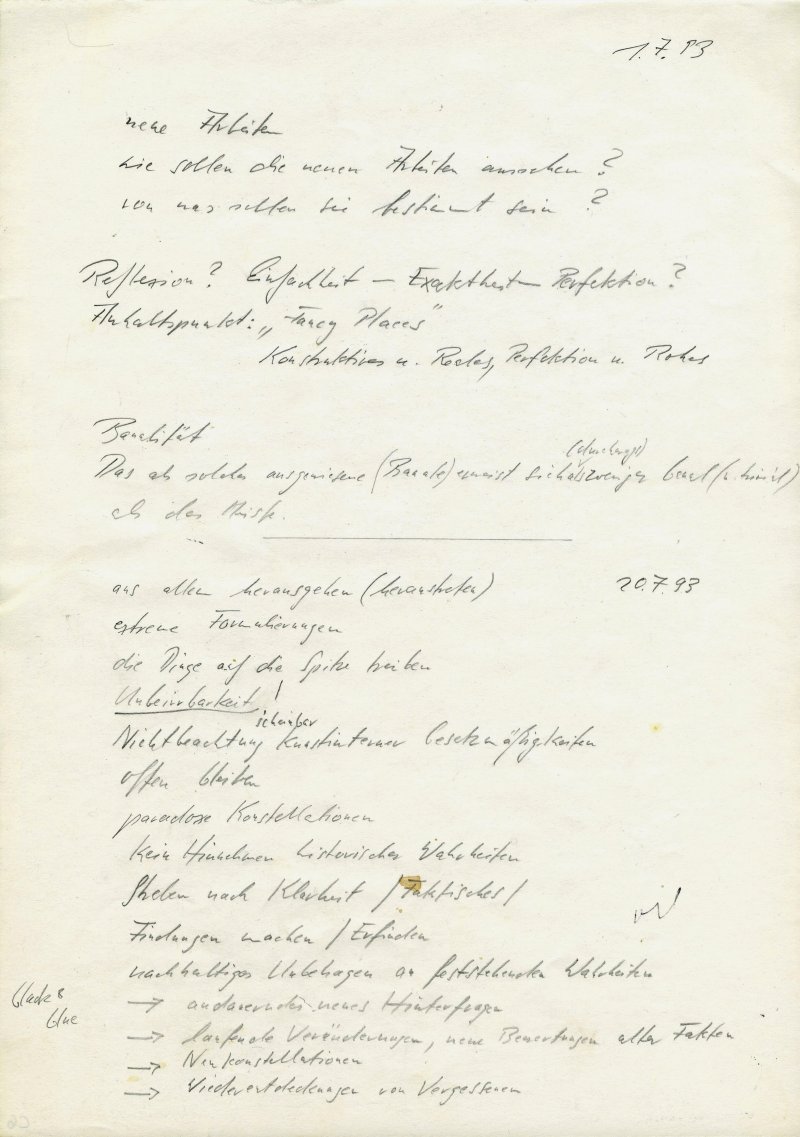 1.7.93
neue Arbeiten
wie sollen die neuen Arbeiten aussehen?
von was sollen sie bestimmt sein?
Reflexion? Einfachheit – Exaktheit – Perfektion?
Anhaltspunkt: „Fancy Places"
Konstruktives u. Reales, Perfektion u. Rohes
Banalität
Das als solches ausgewiesene (Banale) erweist sich als weniger banal (u. trivial)
als das
aus allem herausgehen (heraustreten) 20.7.93
extreme Formulierungen
die Dinge auf die Spitze treiben
Unbeirrbarkeit!
scheinbar
Nichtbeachtung kunstinterner Gesetzmäßigkeiten
offen bleiben
paradoxe Konstellationen
kein Hinnehmen historischer Wahrheiten
Streben nach Klarheit / Faktisches /
Findungen machen / Erfinden
nachhaltiges Unbehagen an feststehenden Wahrheiten
black & blue
→ andauerndes neues Hinterfragen
→ laufende Veränderungen, neue Bewertungen alter Fakten
→ Neukonstellationen
→ Wiederentdeckungen von Vergessenem